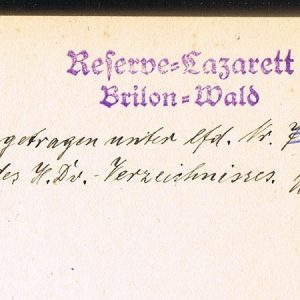 Reserve=Lazarett
Brilon=Wald
getragen unter lfd. Nr.
des H.Dv.-Verzeichnisses.